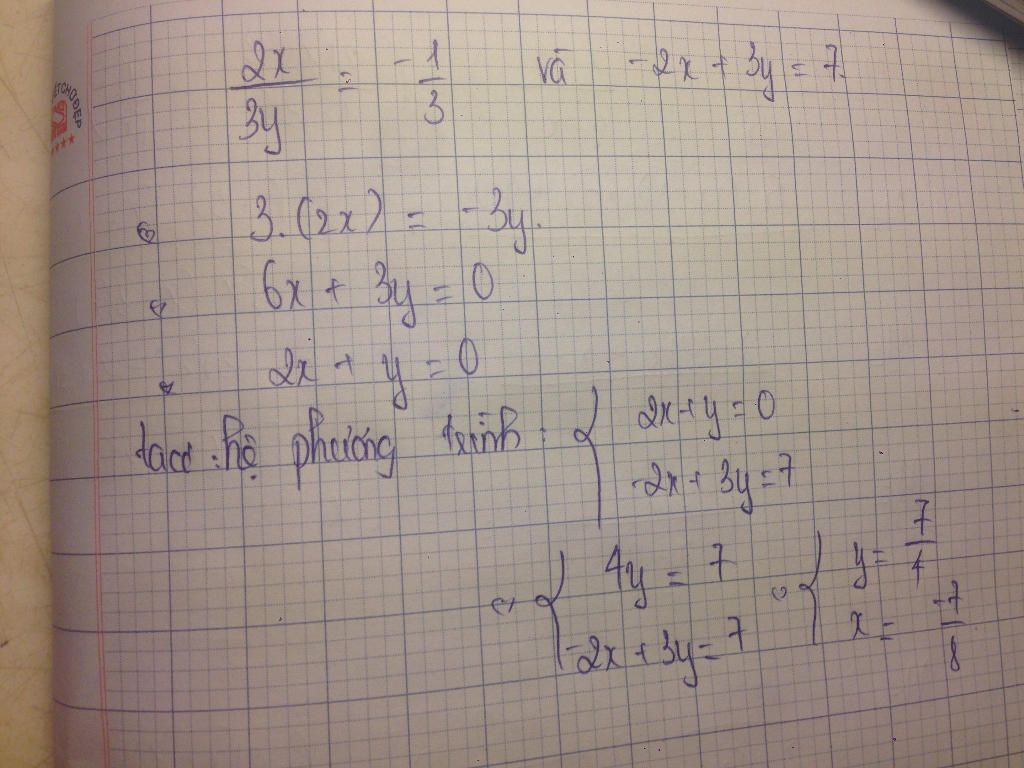 2x/3y = -1/3 và -2x + 3y = 7.
⇔ 3.(2x) = -3y.
⇔ 6x + 3y = 0
⇔ 2x + y = 0
ta có: hệ phương trình: { 2x+y=0
-2x+3y=7
⇔ { 4y = 7 ⇔ { y = 7/4
-2x+3y=7 x = -7/8